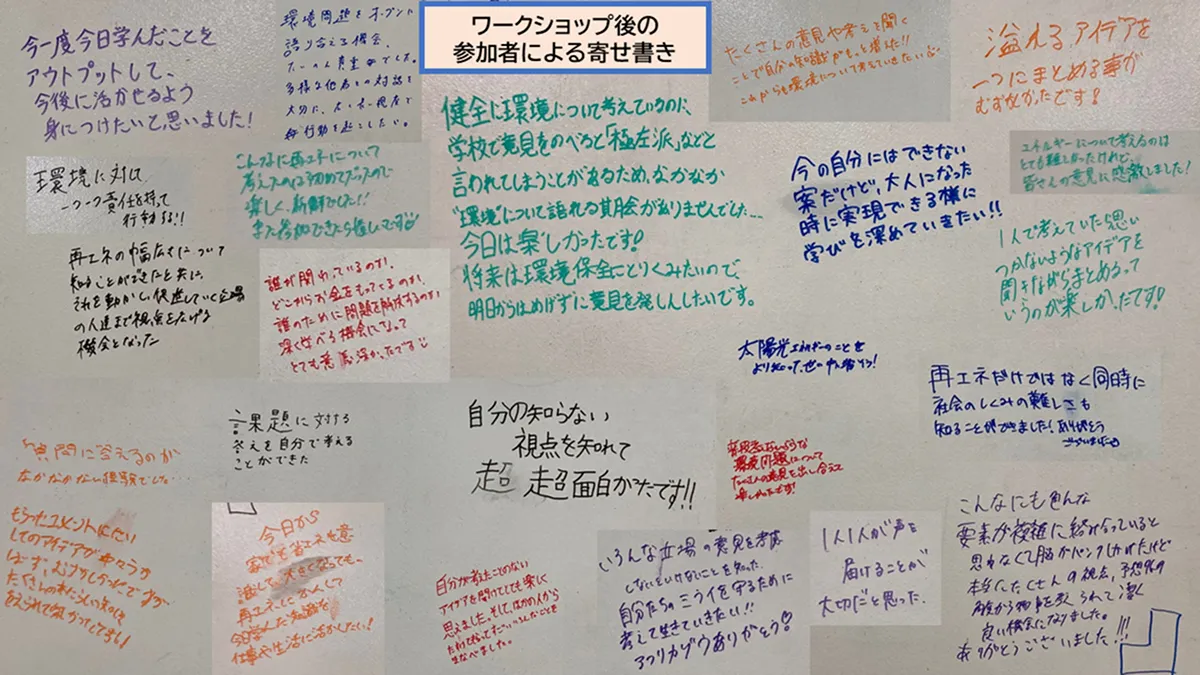 ワークショップ後の
参加者による寄せ書き
今一度今日学んだことを
アウトプットして、
今後に活かせるよう
身につけたいと思いました!
環境問題をオープンに
語り合える機会、
多様な他者との対話を
大切に、
行動を起こしたい。
たくさんの意見や考えを聞く
ことで自分の知識がもっと増えた!!
これからも環境について考えていきたい
溢れるアイデアを
一つにまとめる事が
むずかしかったです!
環境に対し
一つ一つ責任を持って
行動する!!
こんなに再エネについて
考えたのは初めてだったので
楽しく、新鮮でした!!
また参加できたら嬉しいです
健全に環境について考えているのに、
学校で意見をのべると「極左派」などと
言われてしまうことがあるため、なかなか
"環境"について語れる機会がありませんでした…
今日は楽しかったです!
将来は環境保全にとりくみたいので、
明日からはめげずに意見を発しんしたいです。
今の自分にはできない
案だけど、大人になった
時に実現できる様に
学びを深めていきたい!!
エネルギーについて考えるのは
とても難しかったけれど、
皆さんの意見に感激しました!
1人で考えていたら思い
つかないようなアイデアを
聞きながらまとめるって
いうのが楽しかったです!
再エネの幅広さについて
知ることができたと共に、
それを動かし、促進していく立場
の人達まで視点を広げる
機会となった
誰が関わっているのか、
どこからお金をもってくるのか、
誰のために問題を解決するのか
深く学べる機会になって
とても意義深かったです
太陽光エネルギーのことを
再エネだけではなく同時に
社会のしくみの難しさも
知ることができました!ありがとう
ございました
課題に対する
答えを自分で考える
ことができた
自分の知らない
視点を知れて
超 超面白かったです!!
環境問題について
たくさんの意見を出し合えて
楽しかったです!
質問に答えるのが
なかなかない経験でした
もらったコメントにたい
してのアイデアが中々うか
ばず、
今日から
家でも省エネを意
識して、大きくなっても、
再エネにかんして
今日学んだ知識を
仕事や生活に活かしたい!
自分が考えたことのない
アイデアを聞けてとても楽しく
思えました。そして、ほかの人から
まなべました。
いろんな立場の意見を考慮
しないといけないことを知った
自分たちのミライを守るために
考えて生きていきたい!!
アフリカゾウありがとう!
1人1人が声を
届けることが
大切だと思った。
こんなにも色んな
要素が複雑に絡み合っていると
思わなくて脳がパンクしかけたけど
本当にたくさんの視点、予想外の
角度から物事を見られて凄く
良い機会になりました。
ありがとうございました!!!